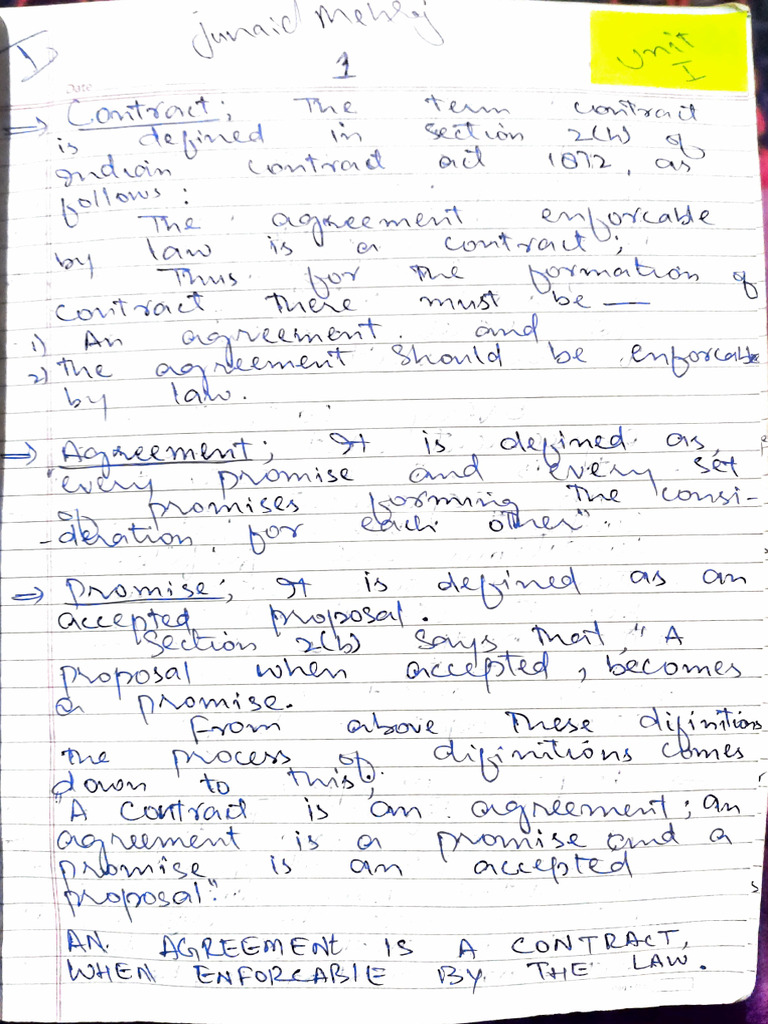 I
Junaid Mehraj
Unit
I
1
Date
⇒ Contract; The term contract
is defined in section 2(h) of
Indian contract act 1872, as
follows:
The agreement enforcable
by law is a contract;
Thus for the formation of
contract there must be —
1) An agreement. and
2) the agreement should be enforcable
by law.
⇒ Agreement; It is defined as,
"every promise and every set
of promises forming the consi-
-deration for each other".
⇒ Promise; It is defined as an
accepted proposal.
Section 2(b) says that, "A
proposal when accepted, becomes
a promise.
From above these difinitions
the process of difinitions comes
down to this;
"A contract is an agreement; an
agreement is a promise and a
promise is an accepted
proposal".
AN AGREEMENT IS A CONTRACT,
WHEN ENFORCABLE BY THE LAW.